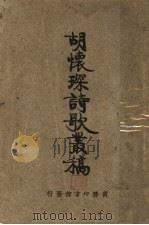 胡懷琛詩歌叢稿
商務印書館發行